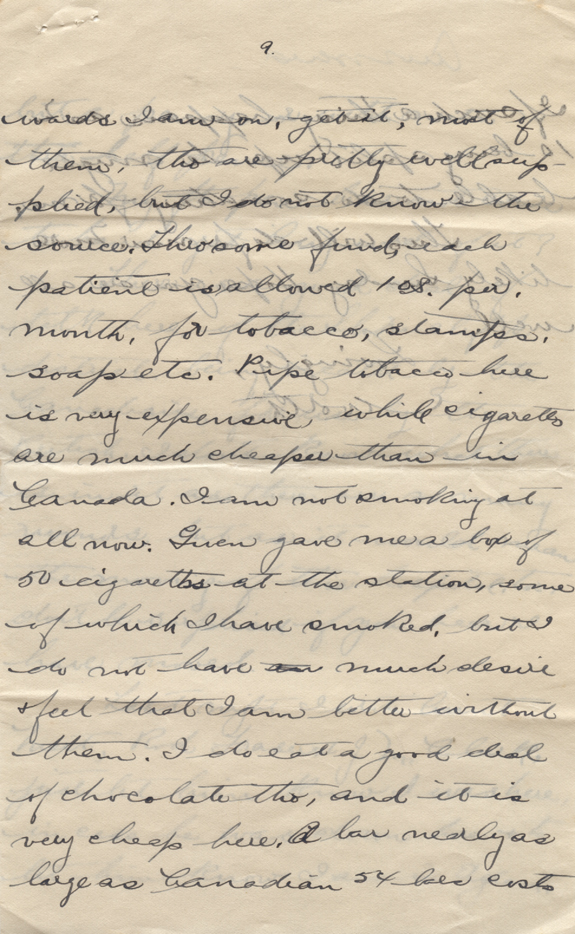 9.
wards I am on, get it, most of
them, tho are pretty well sup-
plied, but I do not know the
source. Thro some fund, each
patient is allowed 10s. per.
month, for tobacco, stamps,
soap etc. Pipe tobacco here
is very expensive while cigarettes
are much cheaper than in
Canada. I am not smoking at
all now. Guen gave me a box of
50 cigaretts at the station, some
of which I have smoked, but I
do not have much desire
& feel that I am better without
them. I do eat a good deal
of chocolate tho, and it is
very cheap here. A bar nearly as
large as Canadian 5¢ bar costs